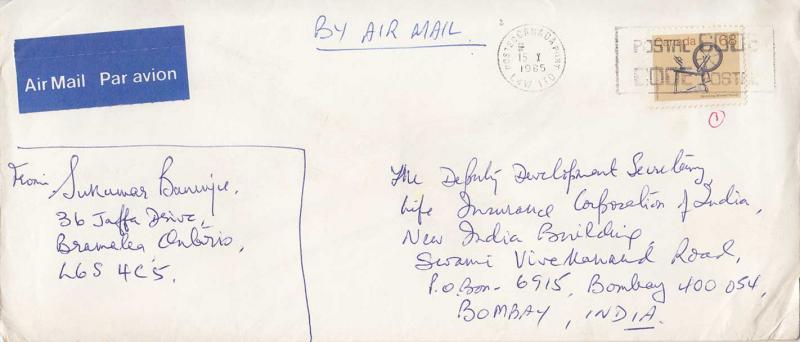 BY AIR MAIL
Air Mail Par avion
POSTES CANADA POST
15 I
1985
Canada 68
POSTAL CODE
CODE POSTAL
1
From:
Sukumar Banerjee,
36 Jaffa Drive,
Bramalea Ontario,
L6S 4C5.
The Deputy Development Secretary,
Life Insurance Corporation of India,
New India Building,
Swami Vivekanand Road,
P.O. Box- 6915, Bombay 400 054,
BOMBAY, INDIA.